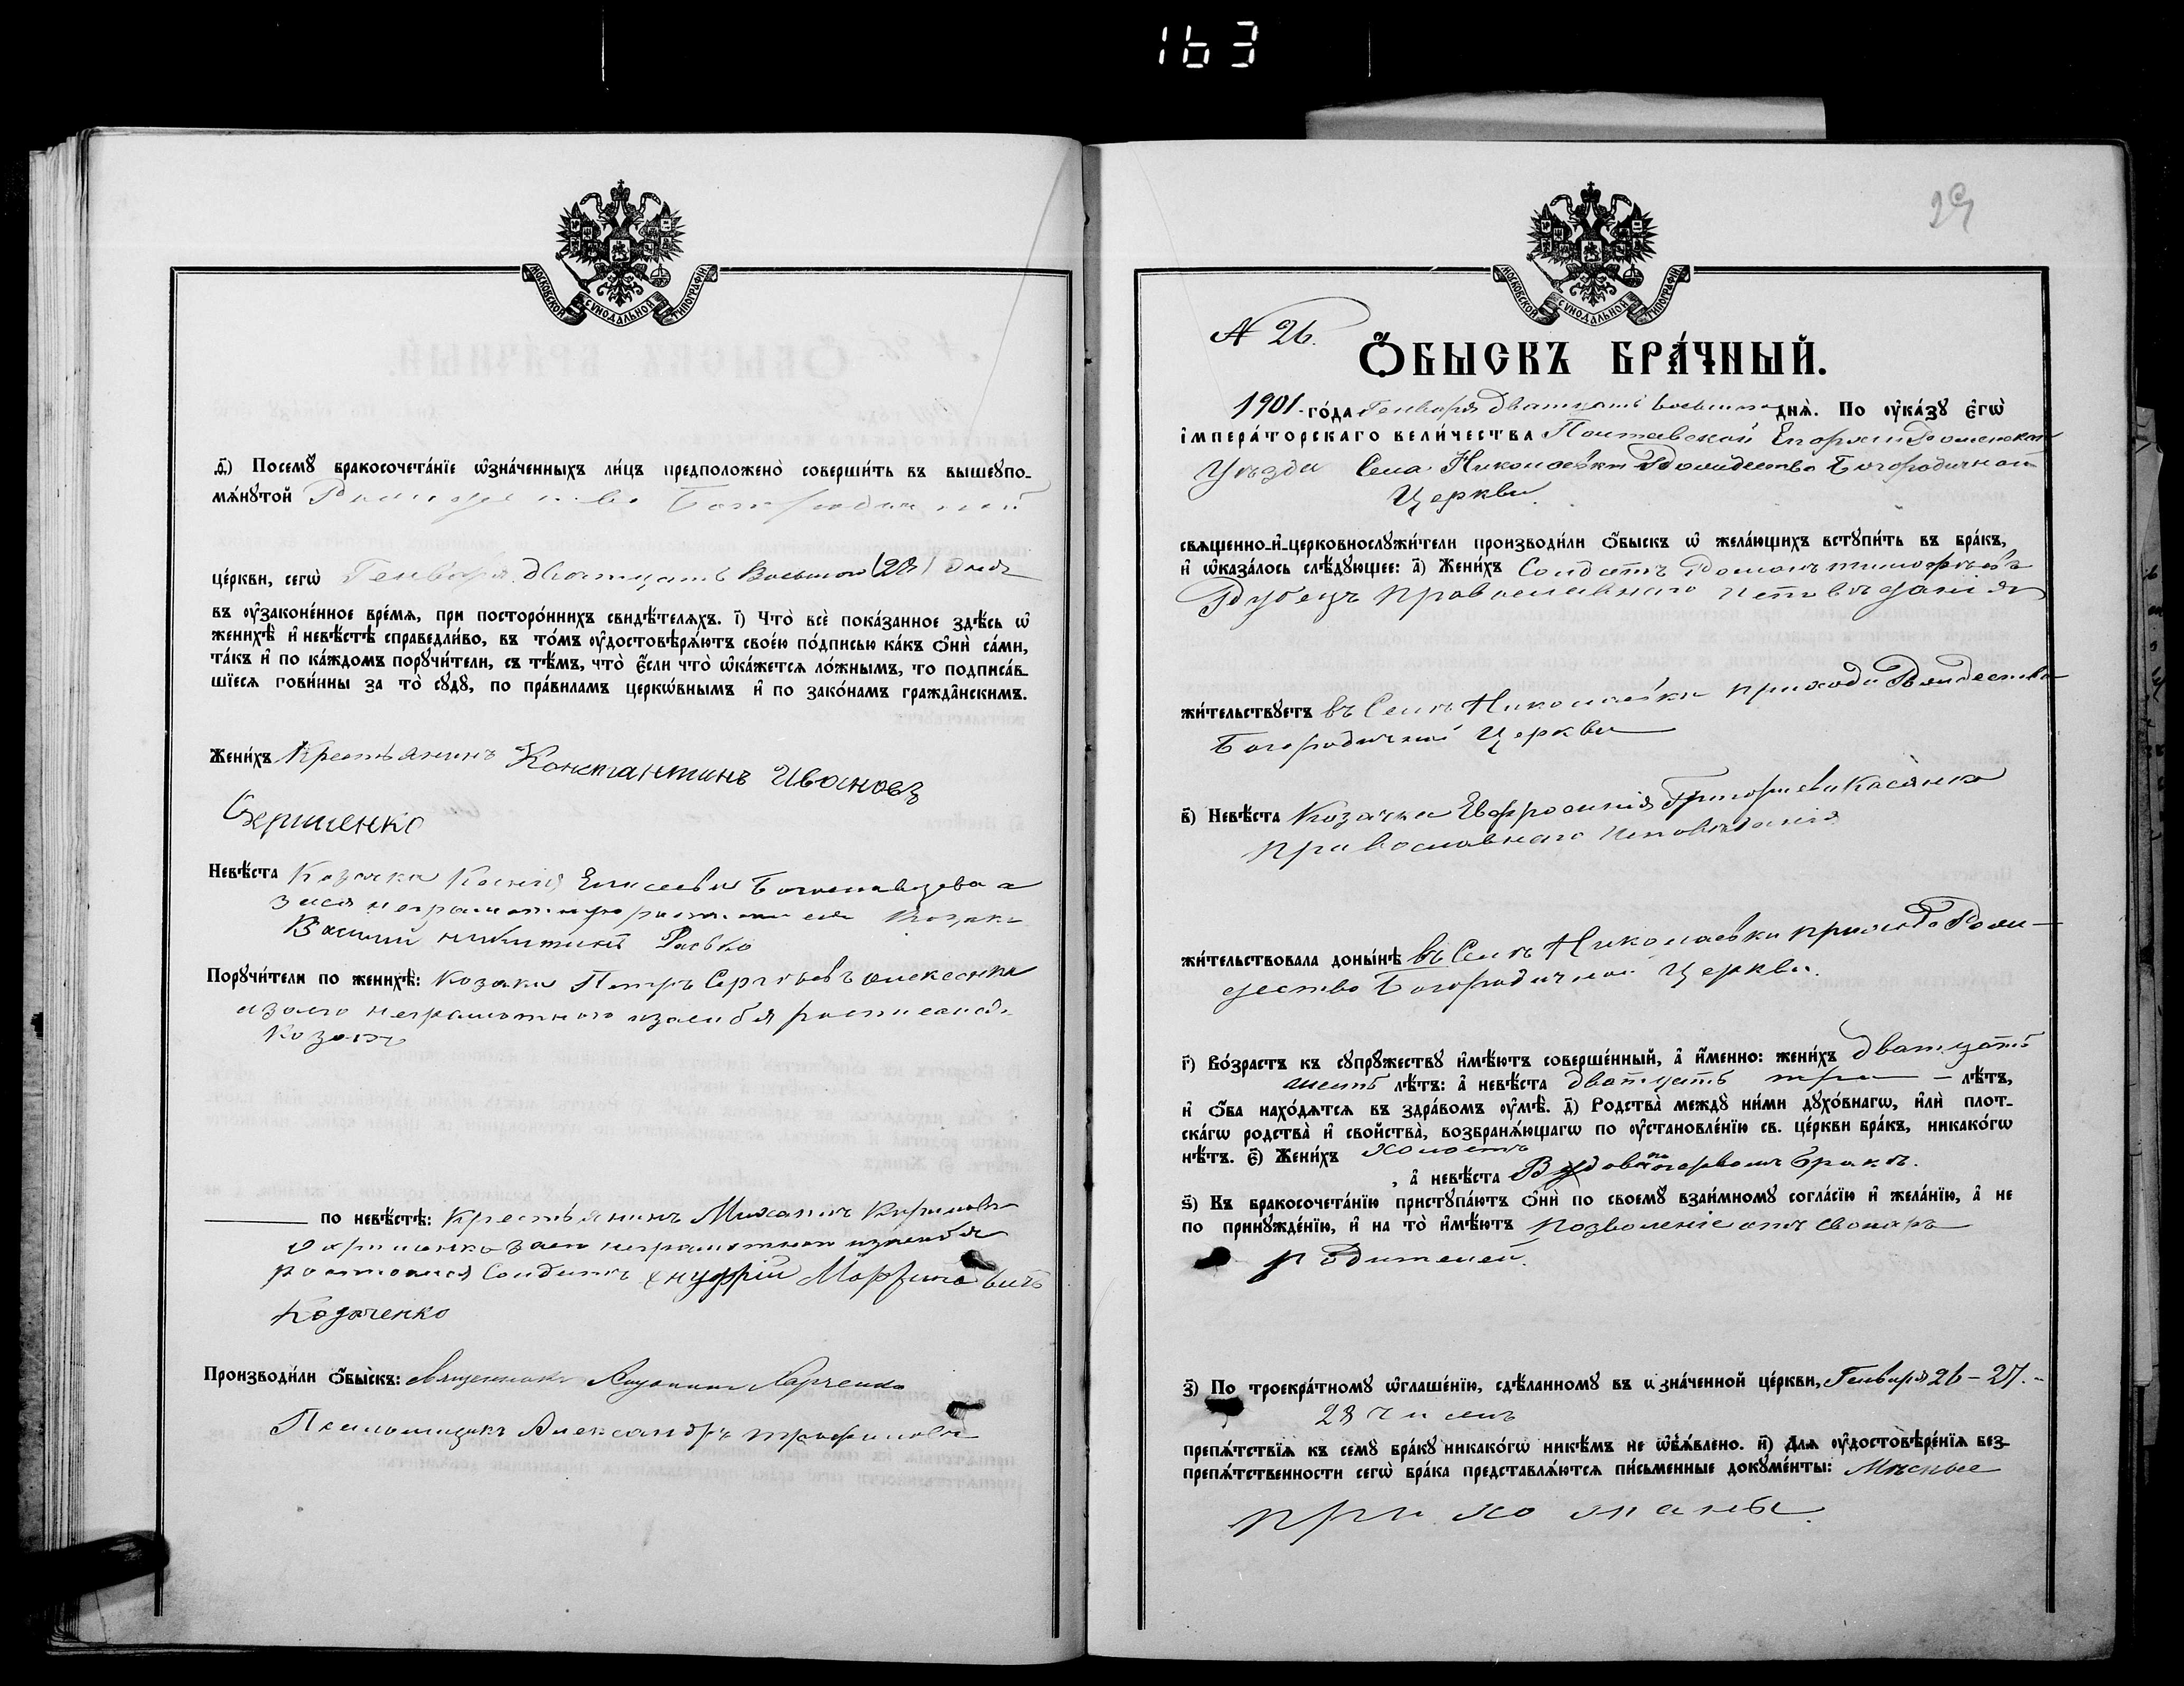 163
МОСКОВСКОЙ СѴНОДАЛЬНОЙ ТИПОГРАФІИ
ѳ҃) Посемꙋ бракосочета́нїе ѡ҆зна́ченныхъ ли́цъ предположено̀ соверши́ть въ вышеꙋпо-
мѧ́нꙋтой Рождество Богородичной
це́ркви, сегѡ̀ Генваря дватцать Восьмого (28) дня
въ ᲂу҆законе́нное вре́мѧ, при посторо́ннихъ свидѣ́телѧхъ. і҃) Что̀ всѐ пока́занное здѣ́сь ѡ҆
женихѣ̀ и҆ невѣ́стѣ справедли́во, въ то́мъ ᲂу҆достовѣрѧ́ютъ свое́ю по́дписью ка́къ ѻ҆нѝ са́ми,
та́къ и҆ по ка́ждомъ порꙋчи́тели, съ тѣ́мъ, что̀ є҆́сли что̀ ѡ҆ка́жетсѧ ло́жнымъ, то подписа́в-
шїесѧ пови́нны за то̀ сꙋдꙋ̀, по пра́виламъ церкѡ́внымъ и҆ по зако́намъ гражда̂нскимъ.
Жени́хъ Крестьянинъ Константинъ Ивановъ
Сергиенко
Невѣ́ста Козачка Ксенія Елисеева а
зася неграмотную росписался Козакъ
Василий Никитинъ
Порꙋчи́тели по женихѣ̀: Козаки Петръ Сергѣевъ
азаего неграмотного изасебя росписался
Козакъ
по невѣ́стѣ: Крестьянинъ Михаилъ Кириловъ
заего неграмотного изасебя
росписался Солдатъ Онуфрій
Козаченко
Производи́ли ѻ҆́быскъ: Священникъ Харченко
Псаломщикъ Александръ Трофимовъ
29
МОСКОВСКОЙ СѴНОДАЛЬНОЙ ТИПОГРАФІИ
N 26.
Ѻ҆́БЫСКЪ БРА́ЧНЫЙ.
1901. го́да Генваря дватцать восьмого днѧ̀. По ᲂу҆ка́зꙋ є҆гѡ̀
і҆мпера́торскаго вели́чества Полтавской Епархіи Роменскаго
Уѣзда Села Николаевки Рождество Богородичной
Церкви.
свѧщенно-и҆-церковнослꙋжи́тели производи́ли ѻ҆́быскъ ѡ҆ жела́ющихъ встꙋпи́ть въ бра́къ,
и҆ ѡ҆каза́лось слѣ́дꙋющее: а҃) Жени́хъ Солдатъ Романъ Тимофѣевъ
Рубецъ православнаго исповѣданія
жи́тельствꙋетъ въ Селѣ Николаевки прихода Рождество
Богородичной Церкви
в҃) Невѣ́ста Козачка Евфросинія Григориева Касянко
православнаго исповѣданія
жи́тельствовала доны́нѣ въ Селѣ Николаевки прихода Рож-
дество Богородичной Церкви.
г҃) Во́зрастъ къ сꙋпрꙋ́жествꙋ и҆мѣ́ютъ соверше́нный, а҆ и҆́менно: жени́хъ дватцать
шесть лѣ́тъ: а҆ невѣ́ста двотцать три — лѣ́тъ,
и҆ ѻ҆́ба нахо́дѧтсѧ въ здра́вомъ ᲂу҆мѣ̀. д҃) Родства̀ междꙋ̀ ни́ми дꙋхо́внагѡ, и҆лѝ плот-
ска́гѡ родства̀ и҆ сво́йства̀, возбранѧ́ющагѡ по ᲂу҆становле́нїю св. це́ркви бра́къ, никако́гѡ
нѣ́тъ. є҃) Жени́хъ Холостъ
, а҆ невѣ́ста Вдова по первом бракѣ.
ѕ҃) Къ бракосочета́нїю пристꙋпа́ютъ ѻ҆нѝ по своемꙋ̀ взаи́мномꙋ согла́сїю и҆ жела́нїю, а҆ не
по принꙋжде́нїю, и҆ на то̀ и҆мѣ́ютъ позволеніе отъ своихъ
родителей.
з҃) По троекра́тномꙋ ѡ҆глаше́нїю, сдѣ́ланномꙋ въ ѡ҆зна́ченной це́ркви, Генваря 26-27.-
28 числъ
препѧ́тствїѧ къ семꙋ̀ бра́кꙋ никако́гѡ никѣ́мъ не ѡ҆б̾ѧ́влено. и҃) Длѧ ᲂу҆достовѣре́нїѧ без-
препѧ́тственности сегѡ̀ бра́ка представлѧ́ютсѧ пи́сьменные докꙋме́нты: Мѣсные
прихожаны.